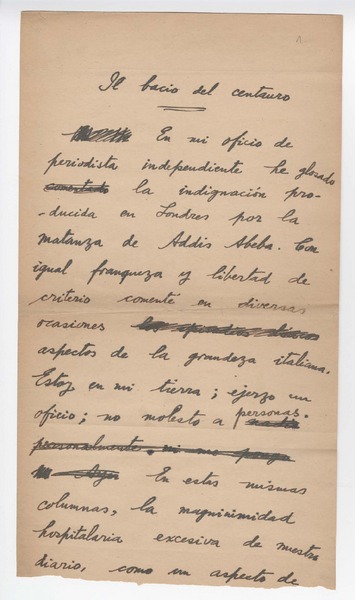 Il bacio del centauro
En mi oficio de
periodista independiente he glosado
comentado la indignación pro-
-ducida en Londres por la
matanza de Addis Abeba. Con
igual franqueza y libertad de
criterio comenté en diversas
ocasiones
aspectos de la grandeza italiana.
Estoy en mi tierra; ejerzo un
oficio; no molesto a personas.
personalmente, ni me
En estas mismas
columnas, la magnimidad
hospitalaria excesiva de nuestro
diario, como un aspecto de